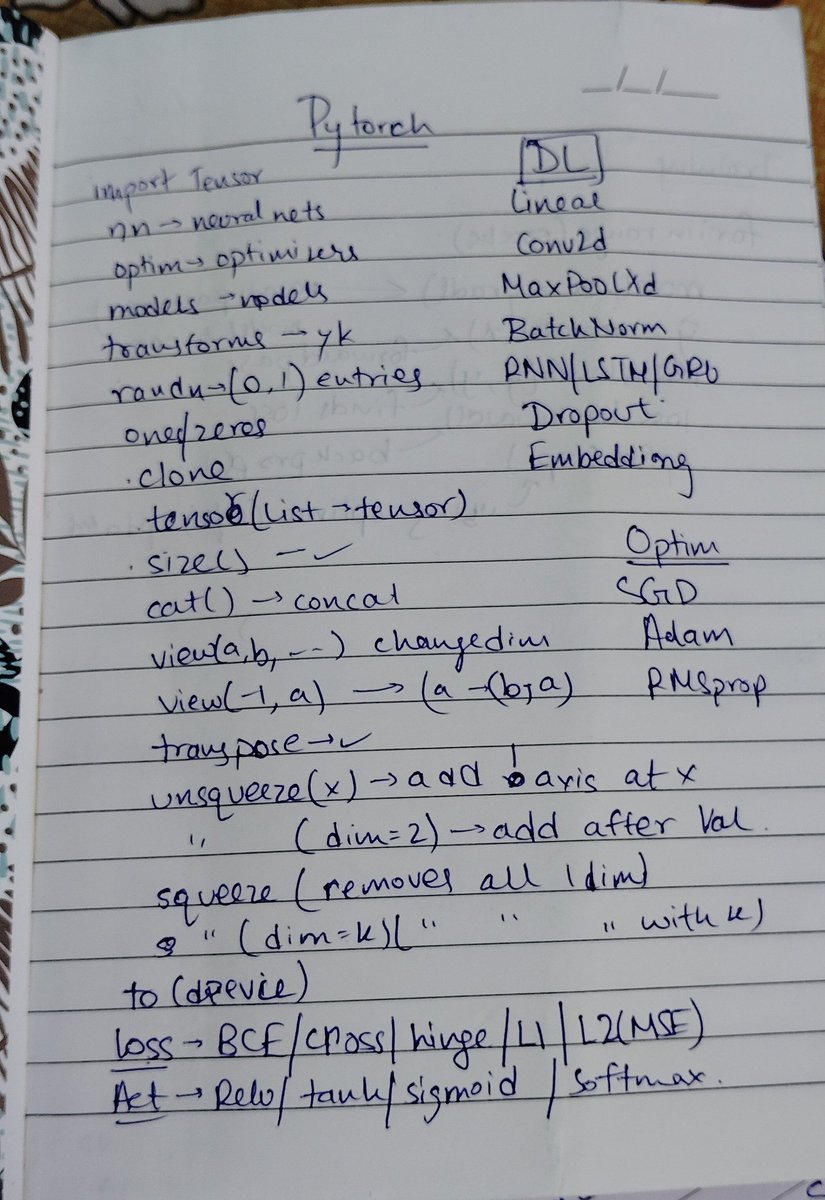 Pytorch
import Tensor
nn → neural nets
optim → optimizers
models → models
transforms → yk
randn → (0,1) entries
ones/zeros
.clone
.tensor (list → tensor)
.size() — ✓
cat() → concat
view(a,b, --) change dim
view(-1, a) → (a → (b, a)
transpose → ✓
unsqueeze(x) → add 1 axis at x
" (dim=2) → add after val.
squeeze (removes all 1 dim)
" (dim=k) (" " " with k)
to (device)
loss → BCE/cross/hinge/L1/L2(MSE)
Act → Relu/tanh/sigmoid/softmax.
DL
Linear
Conv2d
MaxPool(Xd
BatchNorm
RNN/LSTM/GRU
Dropout
Embeddiong
Optim
SGD
Adam
RMSprop